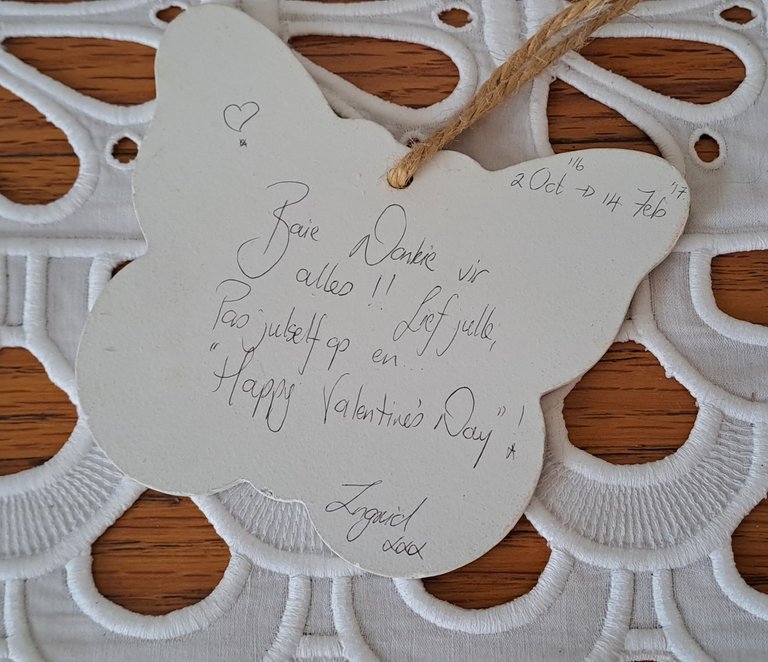 2 Oct '16 → 14 Feb '17
Baie Dankie vir
alles!! Lief julle,
Pas julself op en...
"Happy Valentine's Day"!
Ingrid
xxx